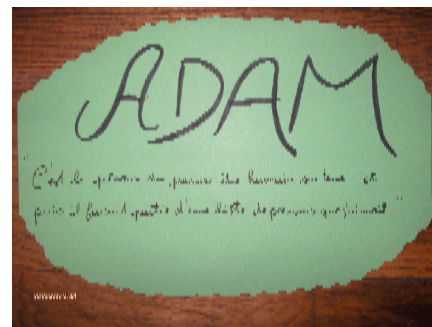 ADAM
" C'est le prénom du premier être humain sur terre et
puis il faisait partie d'une liste de prénoms que j'aimais "